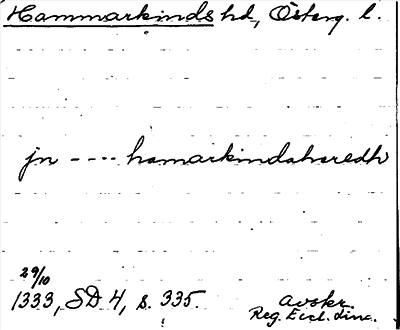 Hammarkinds hd, Österg. l.
jn ---- hamarkindahæredh
29/10
1333, SD 4, s. 335.
avskr.
Reg. Eccl. Linc.